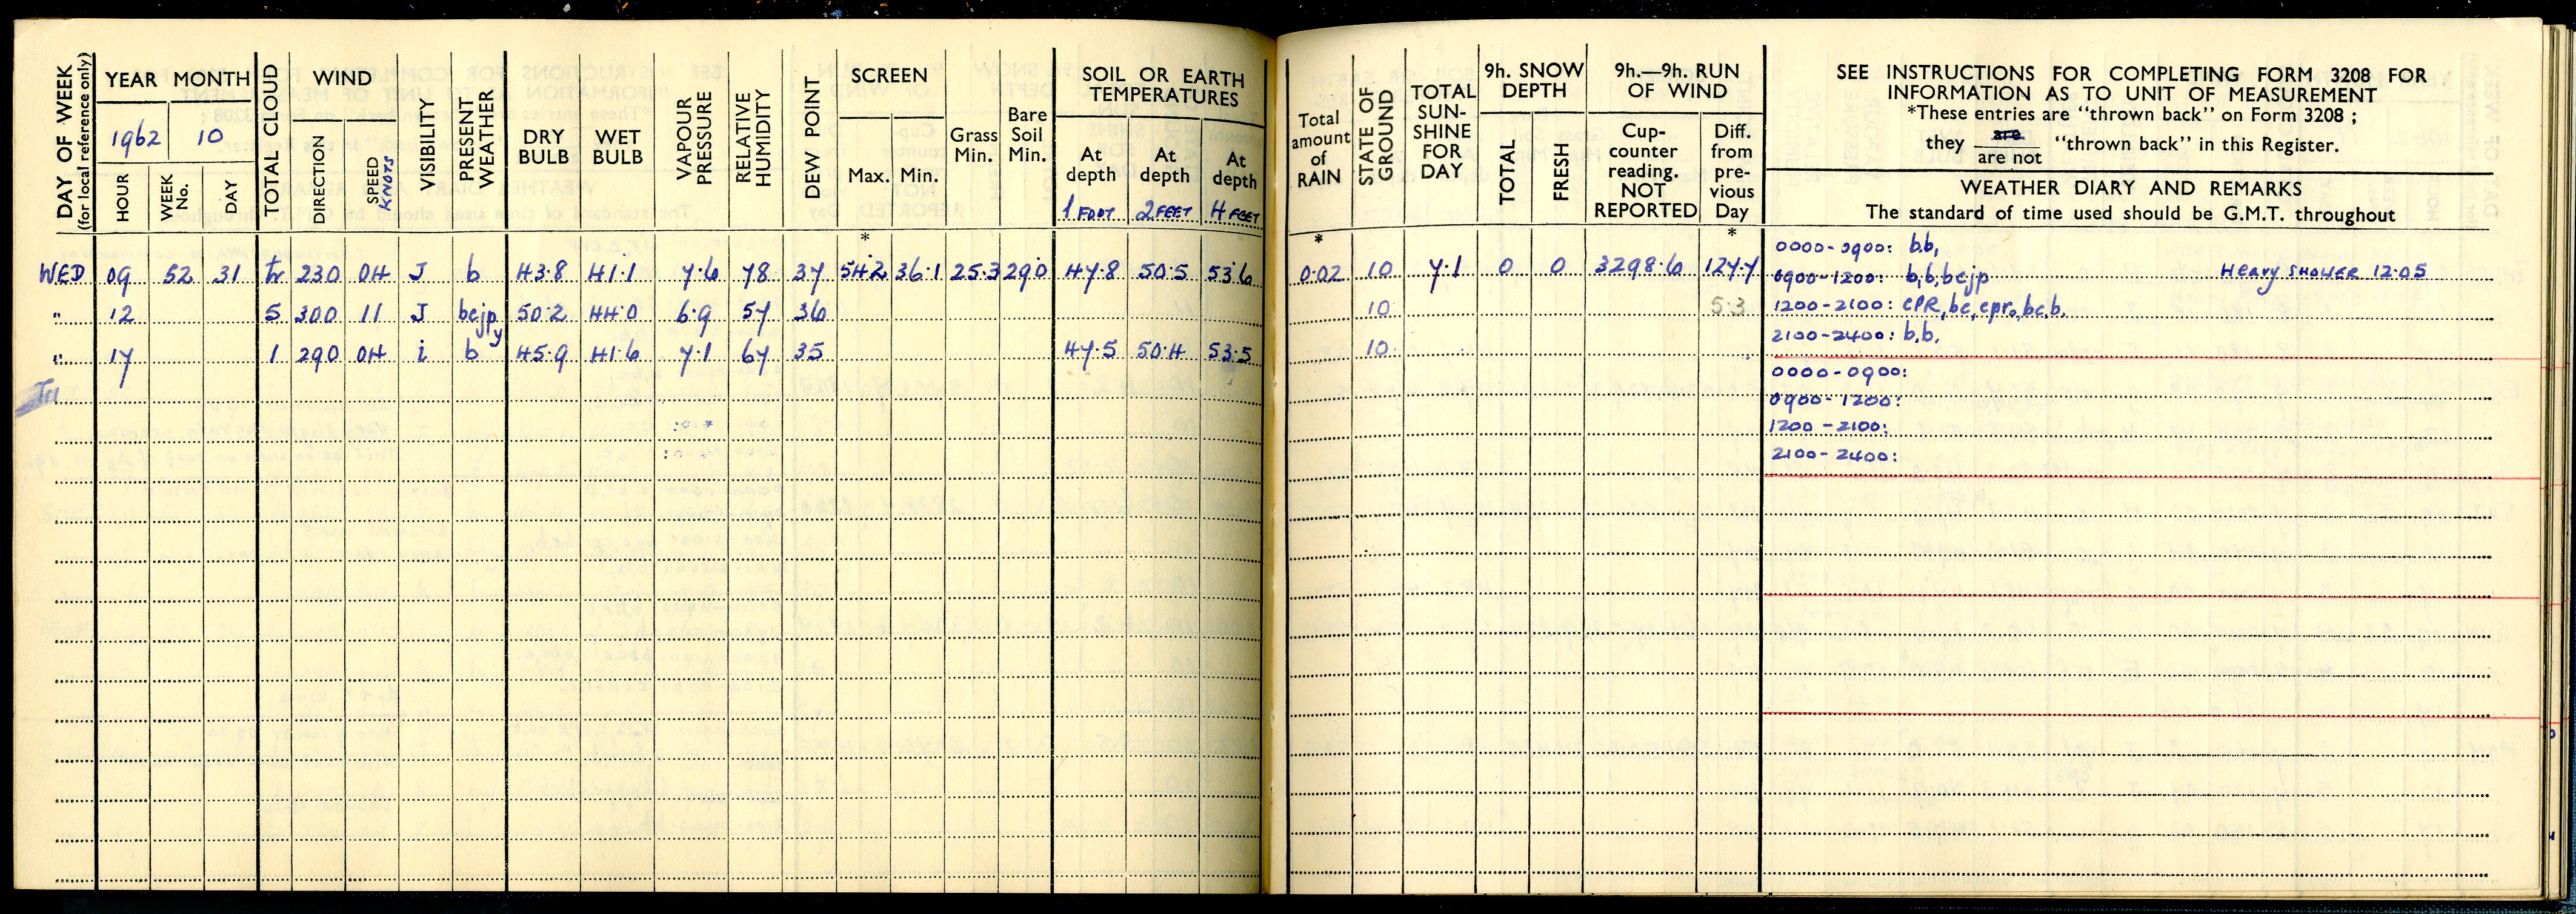 DAY OF WEEK
(for local reference only)
YEAR MONTH
1962 10
HOUR
WEEK No.
DAY
TOTAL CLOUD
WIND
DIRECTION
SPEED
KNOTS
VISIBILITY
PRESENT WEATHER
DRY BULB
WET BULB
VAPOUR PRESSURE
RELATIVE HUMIDITY
DEW POINT
SCREEN
Max. Min.
*
Grass Min.
Bare Soil Min.
SOIL OR EARTH TEMPERATURES
At depth At depth At depth
1 FOOT 2 FEET 4 FEET
Total amount of RAIN
*
STATE OF GROUND
TOTAL SUN-SHINE FOR DAY
9h. SNOW DEPTH
TOTAL
FRESH
9h.—9h. RUN OF WIND
Cup-counter reading. NOT REPORTED
Diff. from pre-vious Day
*
SEE INSTRUCTIONS FOR COMPLETING FORM 3208 FOR
INFORMATION AS TO UNIT OF MEASUREMENT
*These entries are "thrown back" on Form 3208 ;
they are / are not "thrown back" in this Register.
WEATHER DIARY AND REMARKS
The standard of time used should be G.M.T. throughout
WED 09 52 31 tr 230 04 J b 43.8 41.1 7.6 78 37 54.2 36.1 25.3 29.0 47.8 50.5 53.6 0.02 10 7.1 0 0 3298.6 127.7
" 12 5 300 11 J bcjp y 50.2 44.0 6.9 57 36 10 5.3
" 17 1 290 04 i b 45.9 41.6 7.1 67 35 47.5 50.4 53.5 10
0000-0900: b,b,
0900-1200: b,b,bcjp Heavy SHOWER 12.05
1200-2100: cPR,bc,cpr₀,bc,b,
2100-2400: b,b,
0000-0900:
0900-1200:
1200-2100:
2100-2400: